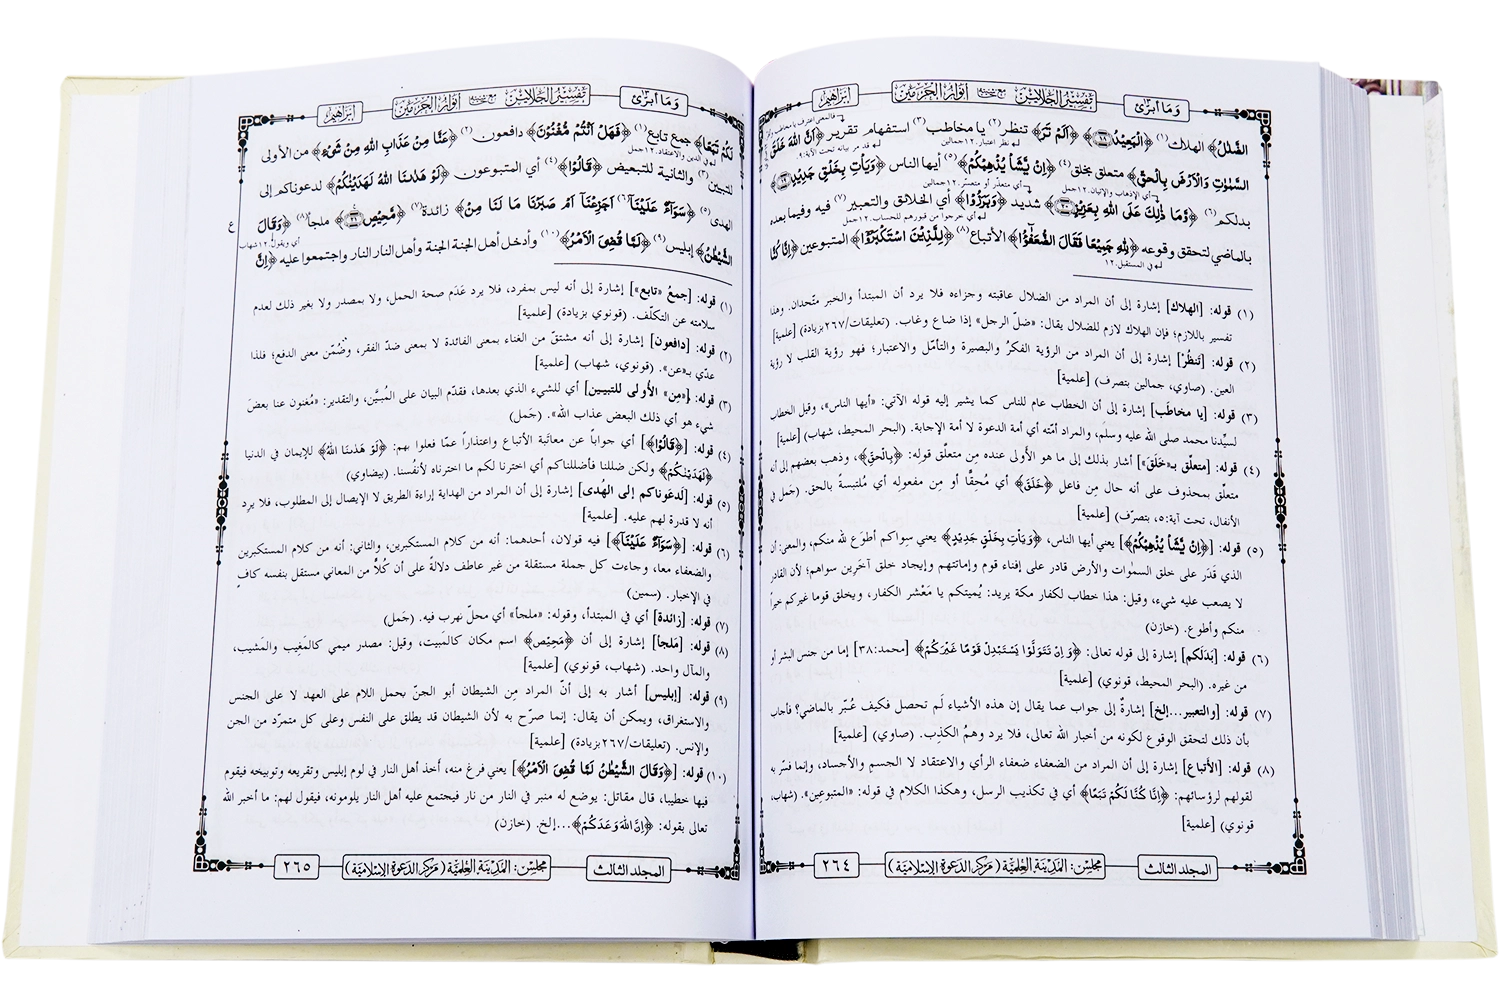 وَمَا أبرئ
تَفسِيرُ الجَلَالَين مع حاشيته أنوَارُ الحَرَمَين
إبْرَاهِيم
الضَّلٰلُ﴾ الهلاك(١) ﴿الْبَعِيْدُ﴾ ﴿اَلَمْ تَرَ﴾ تنظر(٢) يا مخاطب(٣) استفهام تقرير ﴿اَنَّ اللهَ خَلَقَ
السَّمٰوٰتِ وَالْاَرْضَ بِالْحَقِّ﴾ متعلق بخلق(٤) ﴿اِنْ يَّشَاْ يُذْهِبْكُمْ﴾(٥) أيها الناس ﴿وَيَاْتِ بِخَلْقٍ جَدِيْدٍ﴾
بدلكم(٦) ﴿وَّمَا ذٰلِكَ عَلَى اللهِ بِعَزِيْزٍ﴾ شديد ﴿وَبَرَزُوْا﴾ أي الخلائق والتعبير(٧) فيه وفيما بعده
بالماضي لتحقق وقوعه ﴿لِلّٰهِ جَمِيْعًا فَقَالَ الضُّعَفٰٓؤُا﴾ الأتباع(٨) ﴿لِلَّذِيْنَ اسْتَكْبَرُوْٓا﴾ المتبوعين ﴿اِنَّا كُنَّا
(١) قوله: [الهلاك] إشارة إلى أن المراد من الضلال عاقبته وجزاءه فلا يرد أن المبتدأ والخبر متّحدان. وهذا
تفسير باللازم؛ فإن الهلاك لازم للضلال يقال: «ضلّ الرجل» إذا ضاع وغاب. (تعليقات/٢٦٧بزيادة) [علمية]
(٢) قوله: [تَنظُرْ] إشارة إلى أن المراد من الرؤية الفكرُ والبصيرة والتأمّل والاعتبار؛ فهو رؤية القلب لا رؤية
العين. (صاوي، جمالين بتصرف) [علمية]
(٣) قوله: [يا مخاطَب] إشارة إلى أن الخطاب عام للناس كما يشير إليه قوله الآتي: «أيها الناس»، وقيل الخطاب
لسيِّدنا محمد صلى الله عليه وسلم، والمراد أمّته أي أمة الدعوة لا أمة الإجابة. (البحر المحيط، شهاب) [علمية]
(٤) قوله: [متعلّق بـ«خَلَقَ»] أشار بذلك إلى ما هو الأولى عنده مِن متعلّق قوله: ﴿بِالْحَقِّ﴾، وذهب بعضهم إلى أنه
متعلّق بمحذوف على أنه حال مِن فاعلِ ﴿خَلَقَ﴾ أي مُحِقًّا أو مِن مفعولِه أي مُلتبسةً بالحق. (جَمل في
الأنفال، تحت آية:٥، بتصرّف) [علمية]
(٥) قوله: [﴿اِنْ يَّشَاْ يُذْهِبْكُمْ﴾] يعني أيها الناس، ﴿وَيَاْتِ بِخَلْقٍ جَدِيْدٍ﴾ يعني سواكم أطوع لله منكم، والمعنى: أن
الذي قَدَر على خلق السموات والأرض قادر على إفناء قوم وإماتتهم وإيجاد خلق آخَرين سواهم؛ لأن القادر
لا يصعب عليه شيء، وقيل: هذا خطاب لكفار مكة يريد: يُميتكم يا مَعْشر الكفار، ويخلق قوما غيركم خيراً
منكم وأطوع. (خازن)
(٦) قوله: [بَدَلَكم] إشارة إلى قوله تعالى: ﴿وَاِنْ تَتَوَلَّوْا يَسْتَبْدِلْ قَوْمًا غَيْرَكُمْ﴾ [محمد:٣٨] إما من جنس البشر أو
من غيره. (البحر المحيط، قونوي) [علمية]
(٧) قوله: [والتعبير...إلخ] إشارةٌ إلى جواب عما يقال إن هذه الأشياء لَم تحصل فكيف عُبّر بالماضي؟ فأجاب
بأن ذلك لتحقق الوقوع لكونه من أخبار الله تعالى، فلا يرد وهمُ الكذِب. (صاوي) [علمية]
(٨) قوله: [الأتباع] إشارة إلى أن المراد من الضعفاء ضعفاء الرأي والاعتقاد لا الجسمِ والأجساد، وإنما فسّر به
لقولهم لرؤسائهم: ﴿اِنَّا كُنَّا لَكُمْ تَبَعًا﴾ أي في تكذيب الرسل، وهكذا الكلام في قوله: «المتبوعين». (شهاب،
قونوي) [علمية]
المجلد الثالث
مجلس: المَدِينَة العِلْمِيَّة (مَركز الدَعوة الإسْلاميَّة)
٢٦٤
وَمَا أبرئ
تَفسِيرُ الجَلَالَين مع حاشيته أنوَارُ الحَرَمَين
إبْرَاهِيم
لَكُمْ تَبَعًا﴾ جمع تابع(١) ﴿فَهَلْ اَنْتُمْ مُّغْنُوْنَ﴾ دافعون(٢) ﴿عَنَّا مِنْ عَذَابِ اللهِ مِنْ شَىْءٍ﴾ من الأولى
للتبيين(٣) والثانية للتبعيض ﴿قَالُوْا﴾(٤) أي المتبوعون ﴿لَوْ هَدٰىنَا اللهُ لَهَدَيْنٰكُمْ﴾ لدعوناكم إلى
الهدى(٥) ﴿سَوَآءٌ عَلَيْنَآ(٦) اَجَزِعْنَآ اَمْ صَبَرْنَا مَا لَنَا مِنْ﴾ زائدة(٧) ﴿مَّحِيْصٍ﴾ ملجأ(٨) ﴿وَقَالَ
الشَّيْطٰنُ﴾ إبليس(٩) ﴿لَمَّا قُضِىَ الْاَمْرُ﴾(١٠) وأدخل أهل الجنة الجنة وأهل النار النار واجتمعوا عليه ﴿اِنَّ
(١) قوله: [جمعُ «تابع»] إشارة إلى أنه ليس بمفرد، فلا يرد عَدَم صحة الحمل، ولا بمصدر ولا بغير ذلك لعدم
سلامته عن التكلّف. (قونوي بزيادة) [علمية]
(٢) قوله: [دافعون] إشارة إلى أنه مشتقّ من الغناء بمعنى الفائدة لا بمعنى ضدّ الفقر، وضُمّن معنى الدفع؛ فلذا
عدّي بـ«عن». (قونوي، شهاب) [علمية]
(٣) قوله: [«مِن» الأولى للتبيين] أي للشيء الذي بعدها، فقدّم البيان على المُبيَّن، والتقدير: «مُغنون عنا بعضَ
شيء هو أي ذلك البعض عذاب الله». (جَمل)
(٤) قوله: [﴿قَالُوْا﴾] أي جواباً عن معاتَبة الأتباع واعتذاراً عمّا فعلوا بهم: ﴿لَوْ هَدٰىنَا اللهُ﴾ للإيمان في الدنيا
﴿لَهَدَيْنٰكُمْ﴾ ولكن ضللنا فأضللناكم أي اخترنا لكم ما اخترناه لأنفُسنا. (بيضاوي)
(٥) قوله: [لَدعَوناكم إلى الهُدى] إشارة إلى أن المراد من الهداية إراءة الطريق لا الإيصال إلى المطلوب، فلا يرد
أنه لا قدرة لهم عليه. [علمية]
(٦) قوله: [﴿سَوَآءٌ عَلَيْنَآ﴾] فيه قولان، أحدهما: أنه من كلام المستكبرين، والثاني: أنه من كلام المستكبرين
والضعفاء معا، وجاءت كل جملة مستقلة من غير عاطف دلالةً على أن كُلاًّ من المعاني مستقل بنفسه كافٍ
في الإخبار. (سمين)
(٧) قوله: [زائدة] أي في المبتدأ، وقوله: «ملجأ» أي محلّ نهرب فيه. (جَمل)
(٨) قوله: [مَلجأ] إشارة إلى أن ﴿مَحِيْصٍ﴾ اسم مكان كالمَبيت، وقيل: مصدر ميمي كالمَغيب والمَشيب،
والمآل واحد. (شهاب، قونوي) [علمية]
(٩) قوله: [إبليس] أشار به إلى أنّ المراد مِن الشيطان أبو الجنّ بحمل اللام على العهد لا على الجنس
والاستغراق، ويمكن أن يقال: إنما صرّح به لأن الشيطان قد يطلق على النفس وعلى كل متمرّد من الجن
والإنس. (تعليقات/٢٦٧بزيادة) [علمية]
(١٠) قوله: [﴿وَقَالَ الشَّيْطٰنُ لَمَّا قُضِىَ الْاَمْرُ﴾] يعني فرغ منه، أخذ أهل النار في لوم إبليس وتقريعه وتوبيخه فيقوم
فيها خطيبا، قال مقاتل: يوضع له منبر في النار من نار فيجتمع عليه أهل النار يلومونه، فيقول لهم: ما أخبر الله
تعالى بقوله: ﴿اِنَّ اللهَ وَعَدَكُمْ﴾...إلخ. (خازن)
المجلد الثالث
مجلس: المَدِينَة العِلْمِيَّة (مَركز الدَعوة الإسْلاميَّة)
٢٦٥